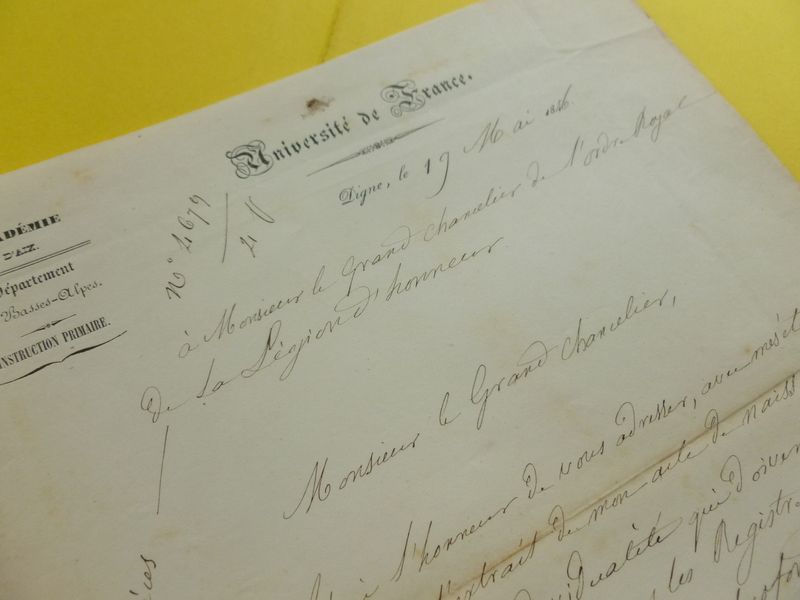 Université de France.
Digne, le 19 Mai 1846.
ADÉMIE
D'AIX.
Département
Basses-Alpes.
INSTRUCTION PRIMAIRE.
N° 4679
4 V
à Monsieur le Grand chancelier de l'ordre Royal
de La Légion d'honneur
Monsieur le Grand chancelier,
l'honneur de vous adresser, avec mes ét
l'extrait de mon acte de naiss
vidualité qui doiven
les Registr